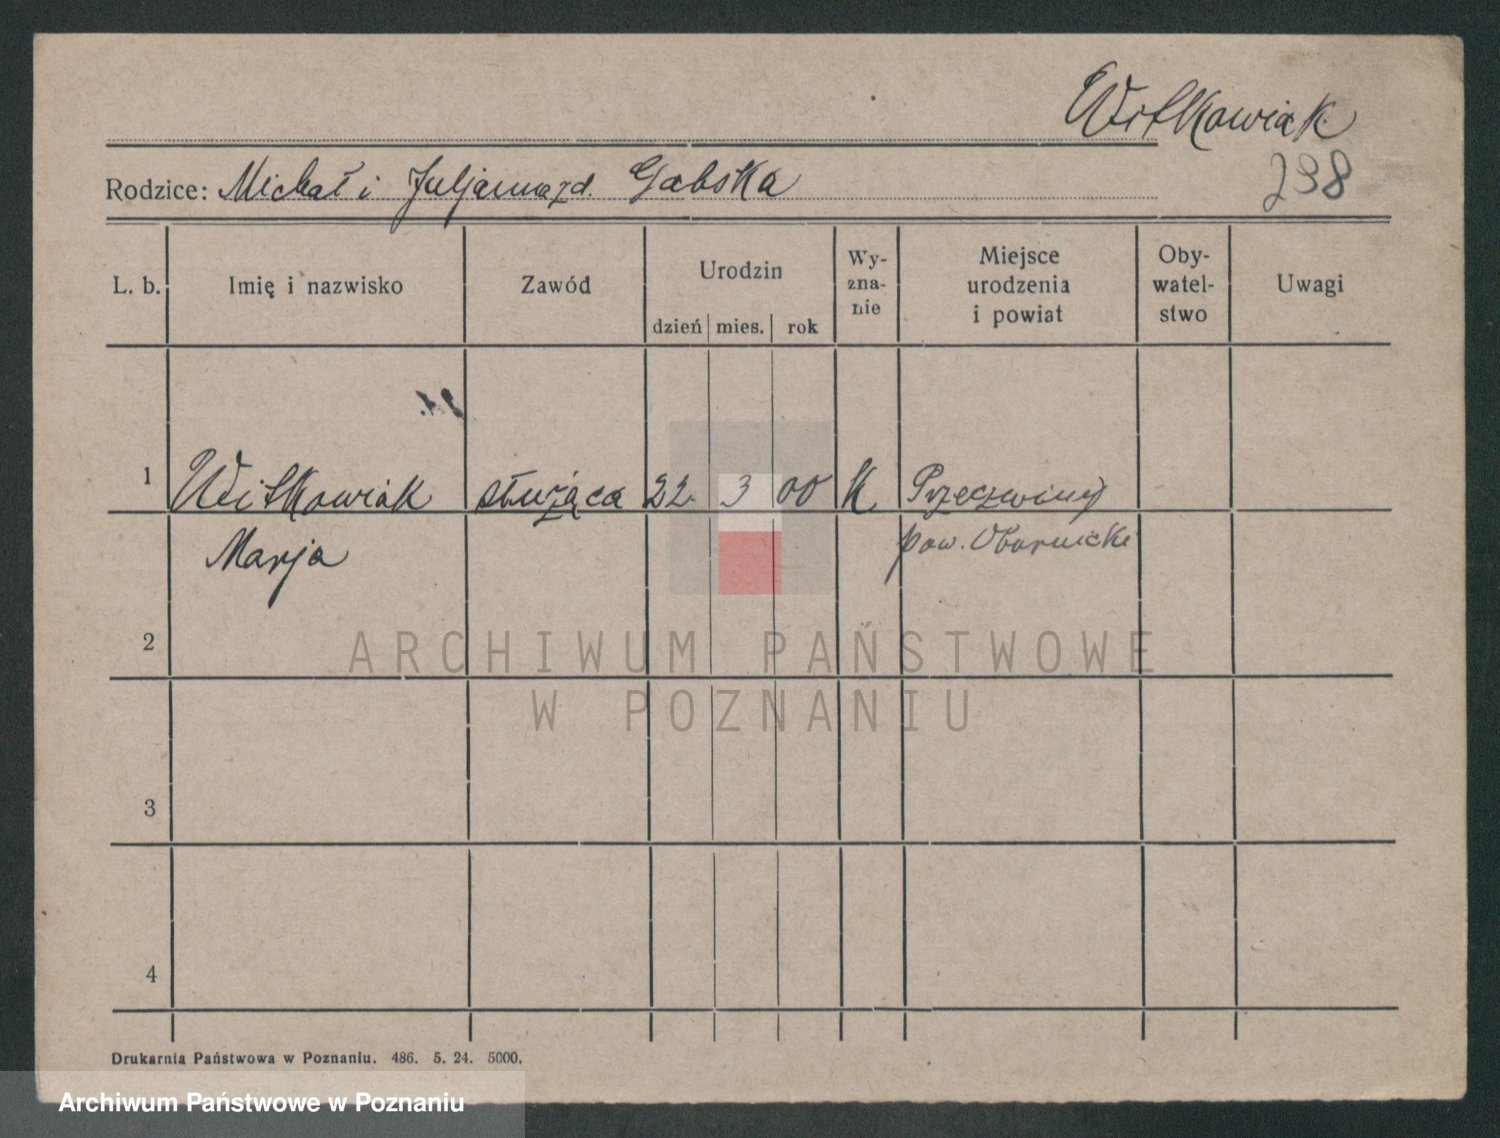 Witkowiak
Rodzice: Michał i Juljanna zd. Gabska
298
L. b.
Imię i nazwisko
Zawód
Urodzin
dzień
mies.
rok
Wy-
zna-
nie
Miejsce
urodzenia
i powiat
Oby-
watel-
stwo
Uwagi
1
Witkowiak służąca 22. 3 00 K
Marja pow. Obornicki
2
ARCHIWUM PAŃSTWOWE
W POZNANIU
3
4
Drukarnia Państwowa w Poznaniu. 486. 5. 24. 5000.
Archiwum Państwowe w Poznaniu